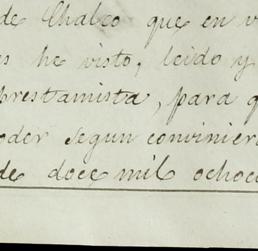 de Chalco que en v
es he visto, leido y
prestamista, para q
oder segun conviniera
de doce mil ochoc